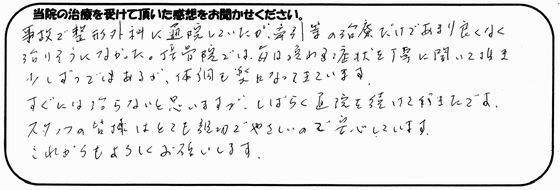 当院の治療を受けて頂いた感想をお聞かせください。
事故で整形外科に通院していたが、牽引等の治療だけであまり良くなく
治りそうになかった。接骨院では、毎日変わる症状を丁寧に聞いて頂き
少しずつではあるが、体調も楽になってきています。
すぐには治らないと思いますが、しばらく通院を続けて行きたです。
スタッフの皆様はとても親切でやさしいので安心しています。
これからもよろしくお願いします。